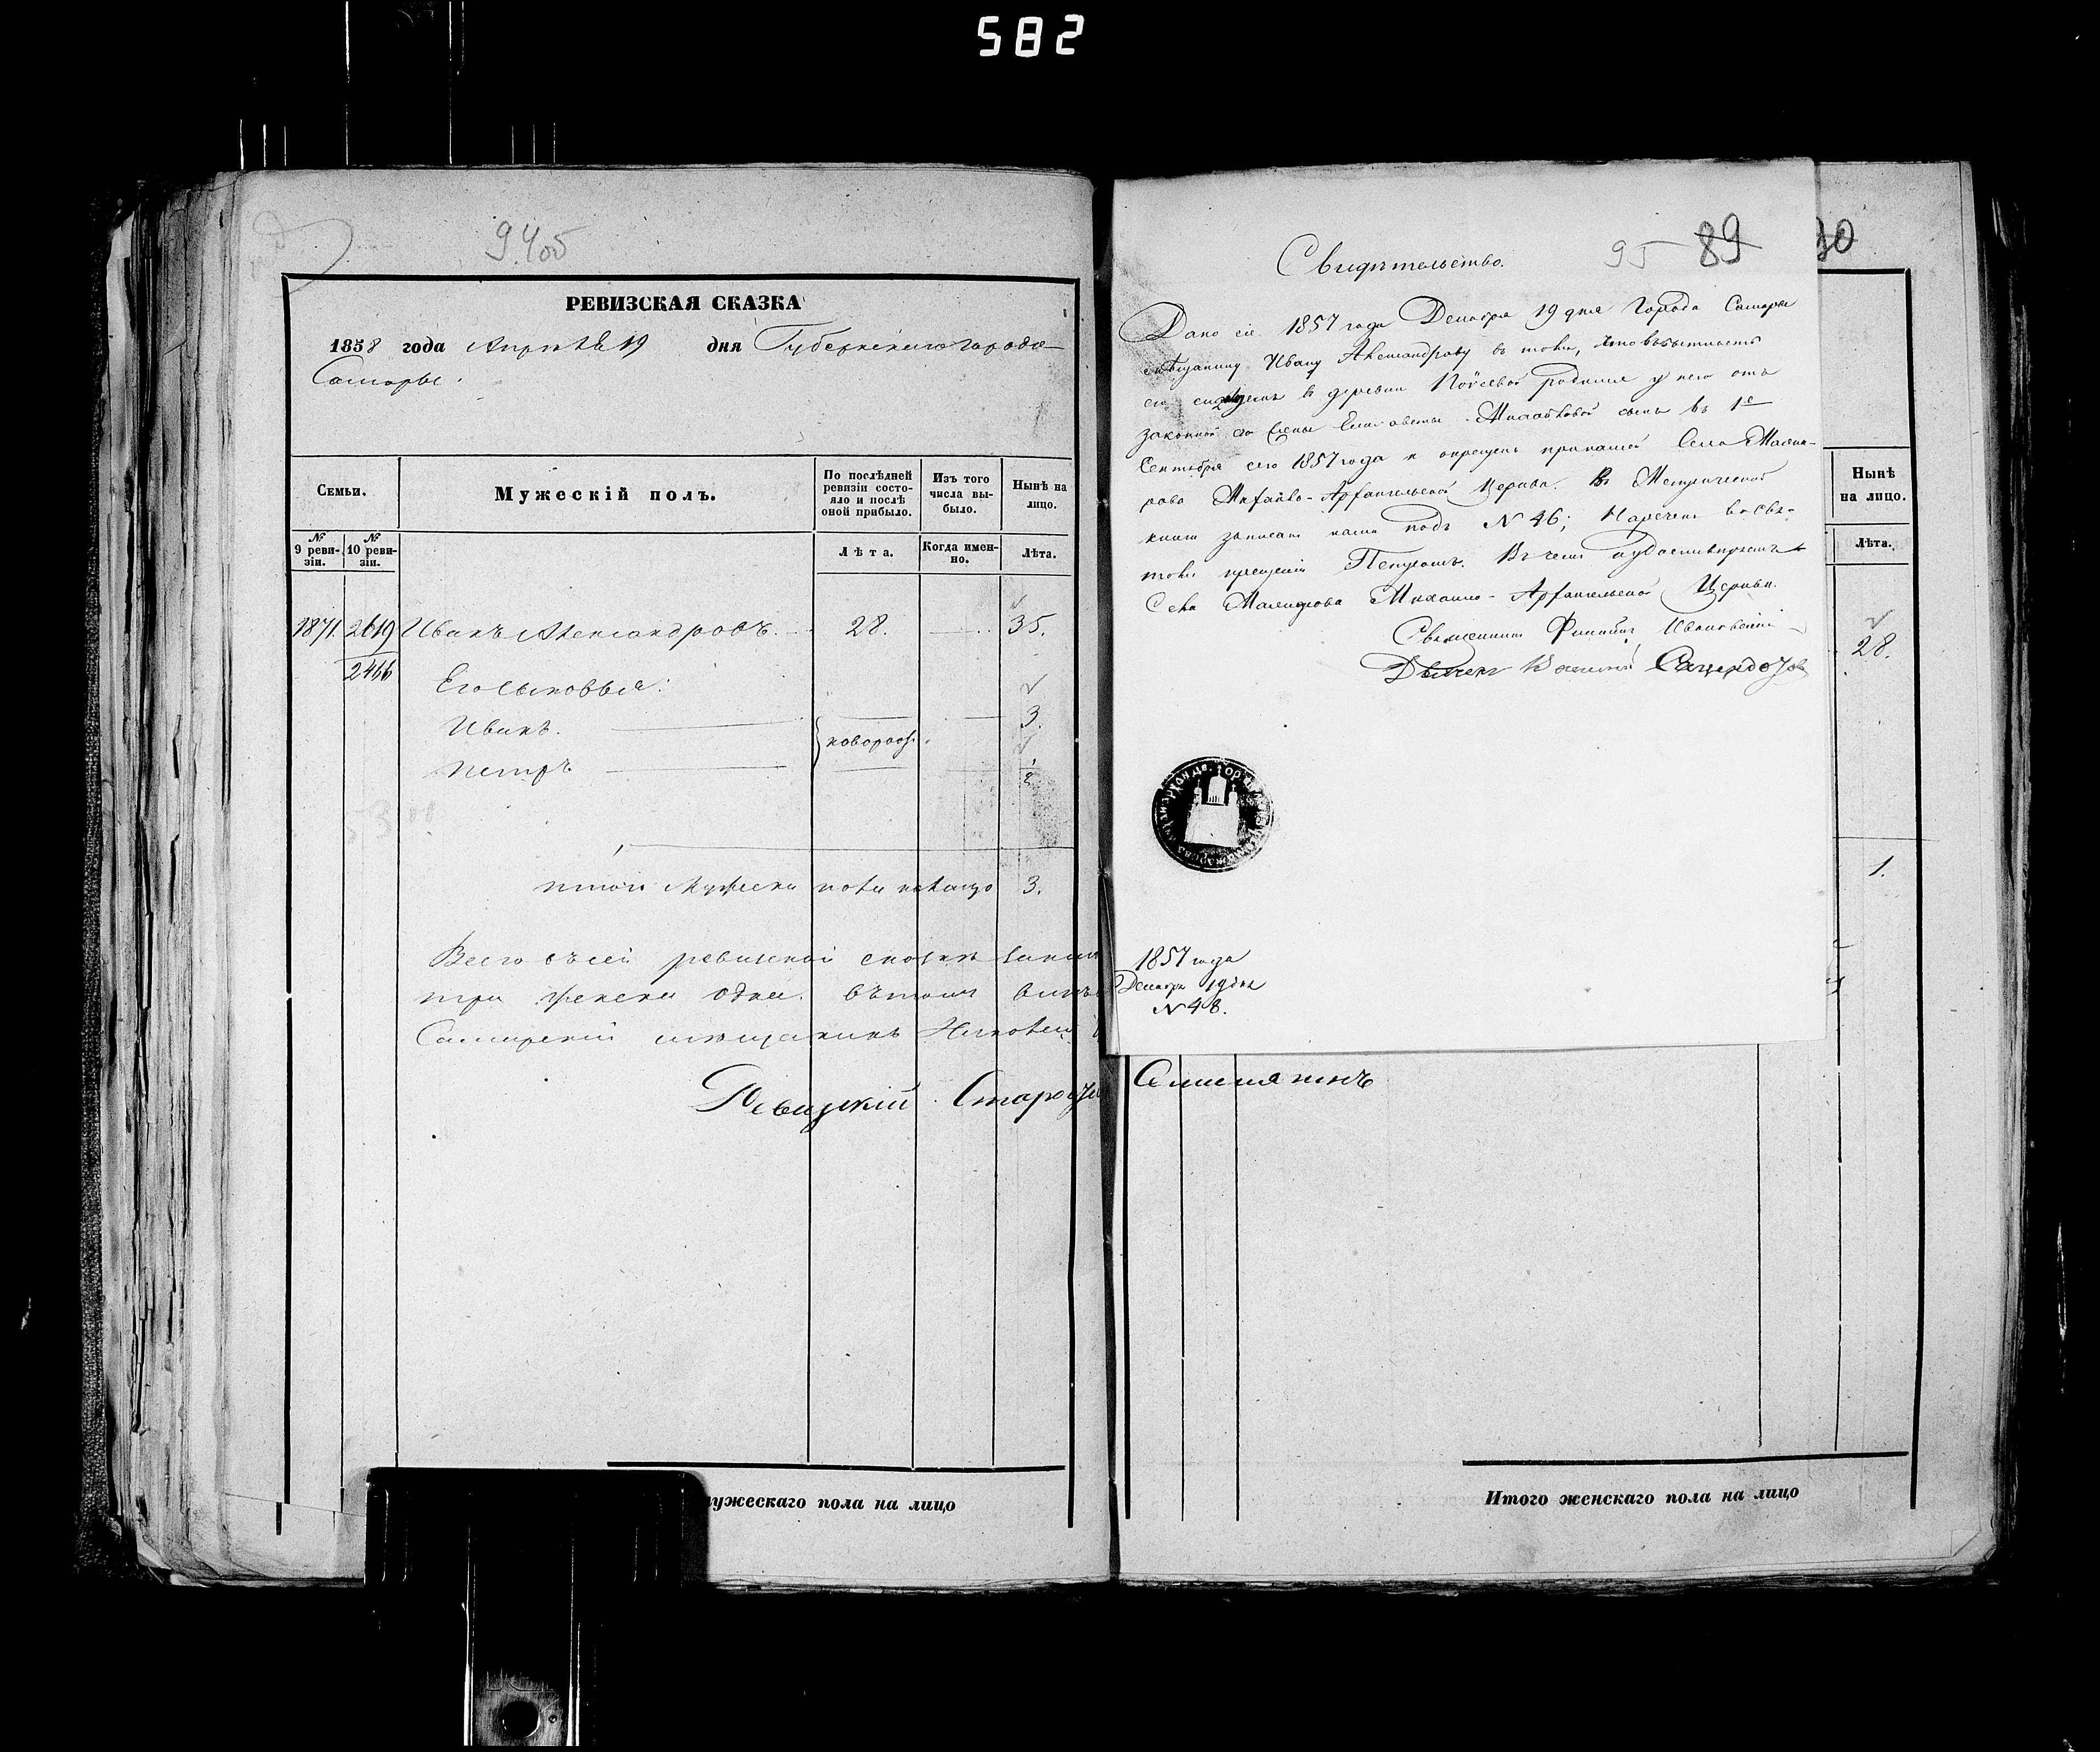 582
94об
РЕВИЗСКАЯ СКАЗКА
1858 года Апреля 19 дня Губернскаго города
Самары.
Семьи.
Мужескій полъ.
По послѣдней ревизіи состояло и послѣ оной прибыло.
Изъ того числа выбыло.
Нынѣ на лицо.
№ 9 ревизіи.
№ 10 ревизіи.
Лѣта.
Когда именно.
Лѣта.
1871. 2619 Иванъ Александровъ. 28. 35.
2466
Его сыновья:
Иванъ. 3.
новорож.
Петръ
итого мужеска пола налицо 3.
Всего въ сей ревизской сказкѣ
три женска одна. въ томъ
Самарскій мѣщанинъ
Ревизкій Староста
мужескаго пола на лицо
95 89 90
Свидѣтельство.
Дано сіе 1857 года Декабря 19 дня Города Самары
мѣщанину Ивану Александрову въ томъ, что въ бытность
его въ деревни родился у него отъ
законной его жены Елисаветы сынъ въ 1е
Сентября сего 1857 года и окрещенъ Села
Михайло-Архангельской Церкви. Въ Метрической
книги записанъ подъ № 46; Нареченъ во свя-
томъ крещеніи Петромъ. Въ чемъ
Села Михаило-Архангельской Церкви.
Священникъ Филиппъ Ивановскій
1857 года
Декабря 19 дня
№ 48.
Нынѣ на лицо.
Лѣта.
28.
1.
Итого женскаго пола на лицо